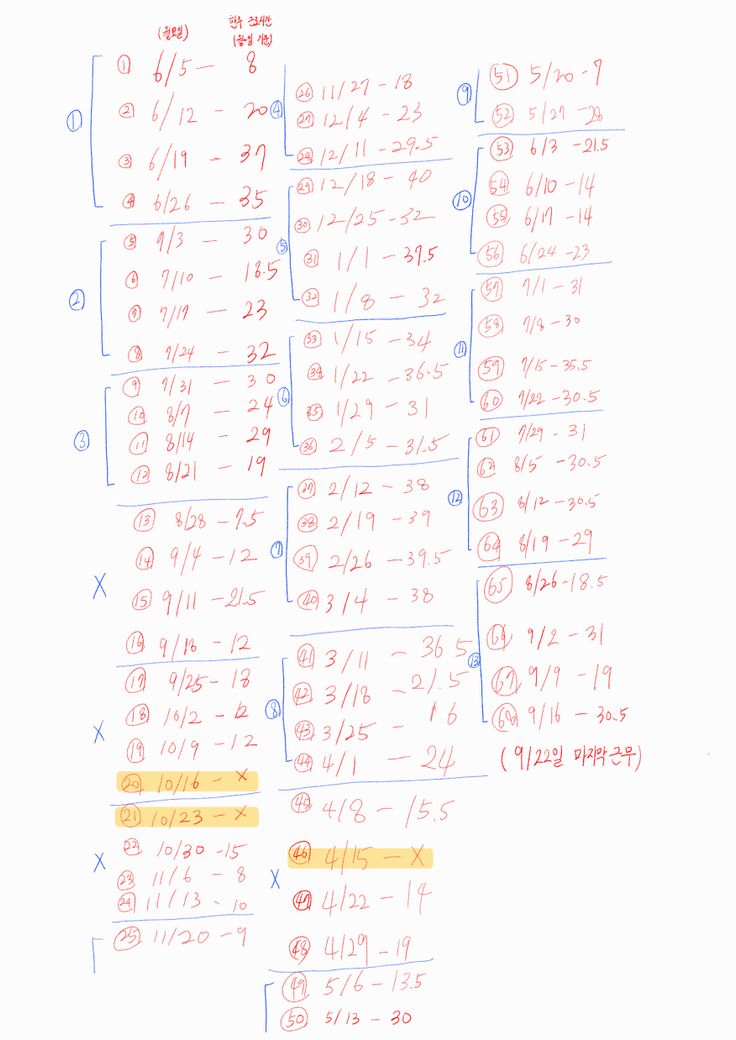 (월요일)
한주 근로시간
(월~일 기준)
①
① 6/5 - 8
② 6/12 - 20
③ 6/19 - 37
④ 6/26 - 35
②
⑤ 7/3 - 30
⑥ 7/10 - 18.5
⑦ 7/17 - 23
⑧ 7/24 - 32
③
⑨ 7/31 - 30
⑩ 8/7 - 24
⑪ 8/14 - 29
⑫ 8/21 - 19
X
⑬ 8/28 - 7.5
⑭ 9/4 - 12
⑮ 9/11 - 21.5
⑯ 9/18 - 12
X
⑰ 9/25 - 18
⑱ 10/2 - 12
⑲ 10/9 - 12
⑳ 10/16 - X
X
㉑ 10/23 - X
㉒ 10/30 - 15
㉓ 11/6 - 8
㉔ 11/13 - 10
㉕ 11/20 - 9
④
㉖ 11/27 - 18
㉗ 12/4 - 23
㉘ 12/11 - 29.5
⑤
㉙ 12/18 - 40
㉚ 12/25 - 32
㉛ 1/1 - 37.5
㉜ 1/8 - 32
⑥
㉝ 1/15 - 34
㉞ 1/22 - 36.5
㉟ 1/29 - 31
㊱ 2/5 - 31.5
⑦
㊲ 2/12 - 38
㊳ 2/19 - 39
㊴ 2/26 - 39.5
㊵ 3/4 - 38
⑧
㊶ 3/11 - 36.5
㊷ 3/18 - 21.5
㊸ 3/25 - 16
㊹ 4/1 - 24
X
㊺ 4/8 - 15.5
㊻ 4/15 - X
㊼ 4/22 - 14
㊽ 4/29 - 19
㊾ 5/6 - 13.5
㊿ 5/13 - 30
⑨
51 5/20 - 7
52 5/27 - 28
⑩
53 6/3 - 21.5
54 6/10 - 14
55 6/17 - 14
56 6/24 - 23
⑪
57 7/1 - 31
58 7/8 - 30
59 7/15 - 35.5
60 7/22 - 30.5
⑫
61 7/29 - 31
62 8/5 - 30.5
63 8/12 - 30.5
64 8/19 - 29
⑬
65 8/26 - 18.5
66 9/2 - 31
67 9/9 - 19
68 9/16 - 30.5
(9/22일 마지막 근무)